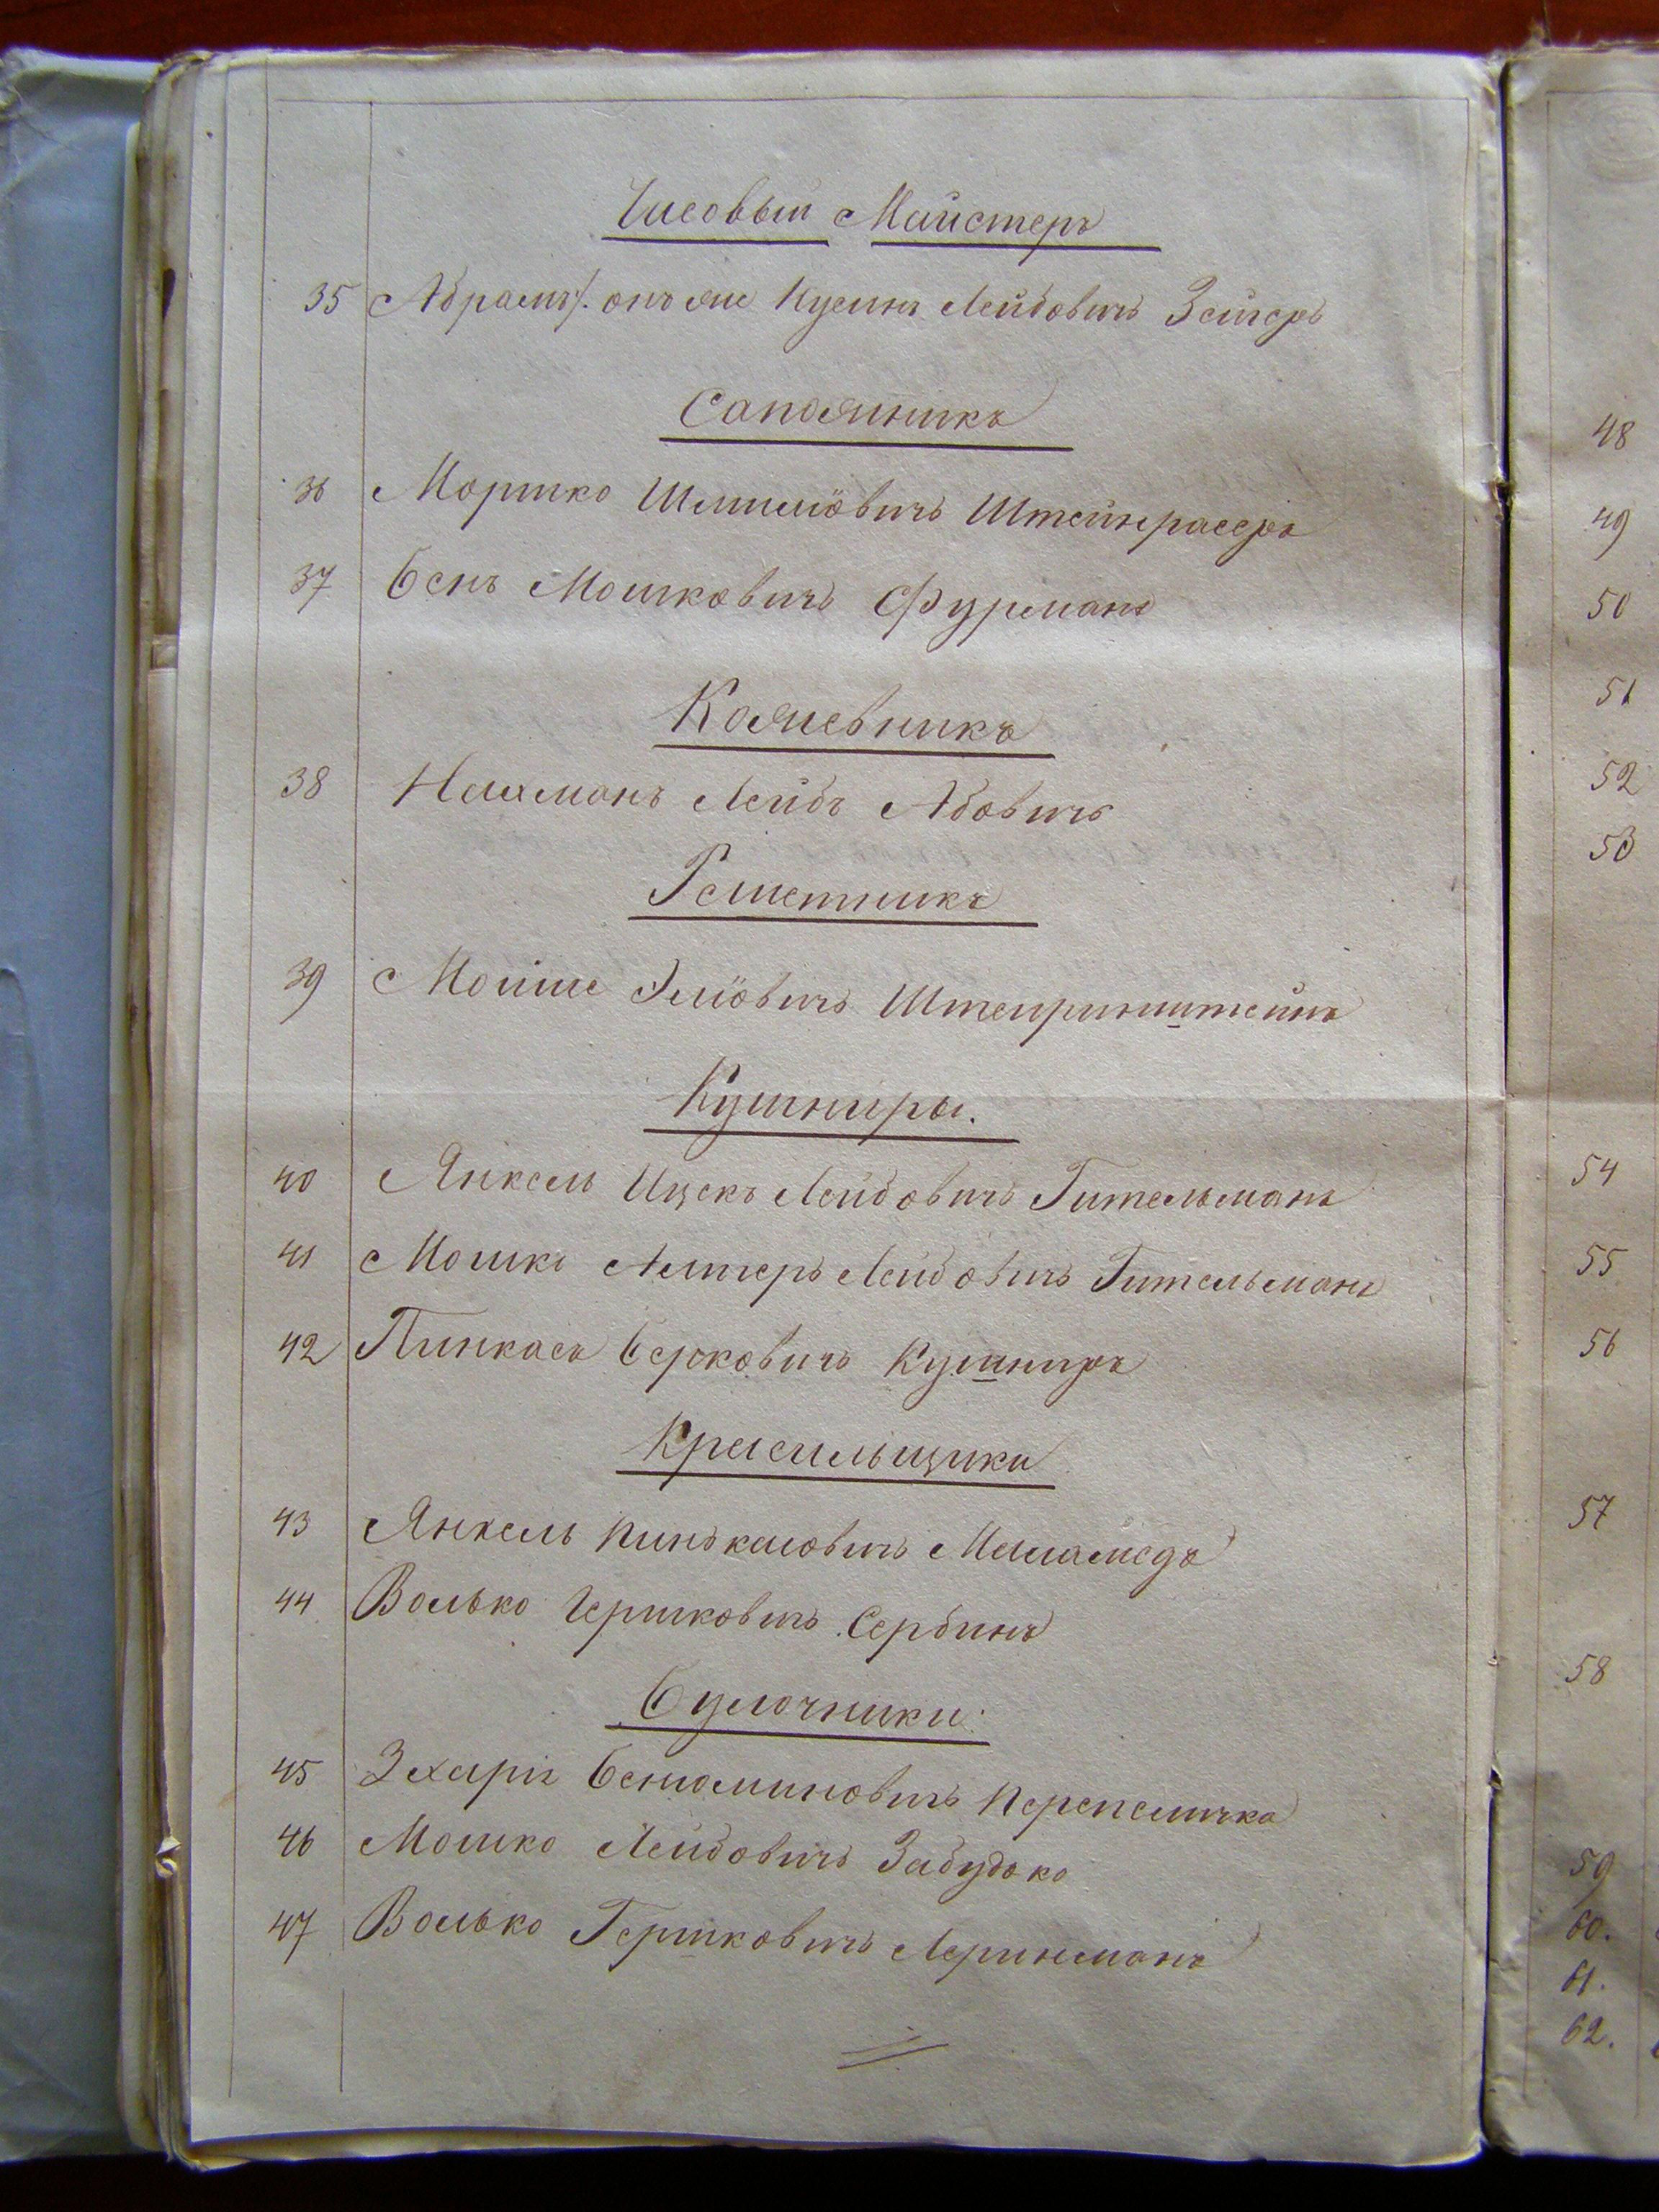 Часовый Майстеръ
35 Абрамъ онъ же Кусинъ Лейбовичъ Зейгеръ
Сапожникъ
36 Мортко Шмилёвичъ Штейнрассеръ
37 Бенъ Мошковичъ Фурманъ
Кожевникъ
38 Нахманъ Лейбъ Абовичъ
Решетникъ
39 Мойше Элiовичъ Штейринштейнъ
Кушниры.
40 Янкель Ицекъ Лейбовичъ Гительманъ
41 Мошко Алтеръ Лейбовичъ Гительманъ
42 Пинкасъ Берковичъ Кушниръ
Красильщики
43 Янкель Пинькасовичъ Меламедъ
44 Волько Гершковичъ Сербинъ
Булочники
45 Зхарiя Бенюминовичъ Перепеличка
46 Мошко Лейбовичъ Забудько
47 Волько Гершковичъ Леринманъ
48
49
50
51
52
53
54
55
56
57
58
59
60.
61.
62.